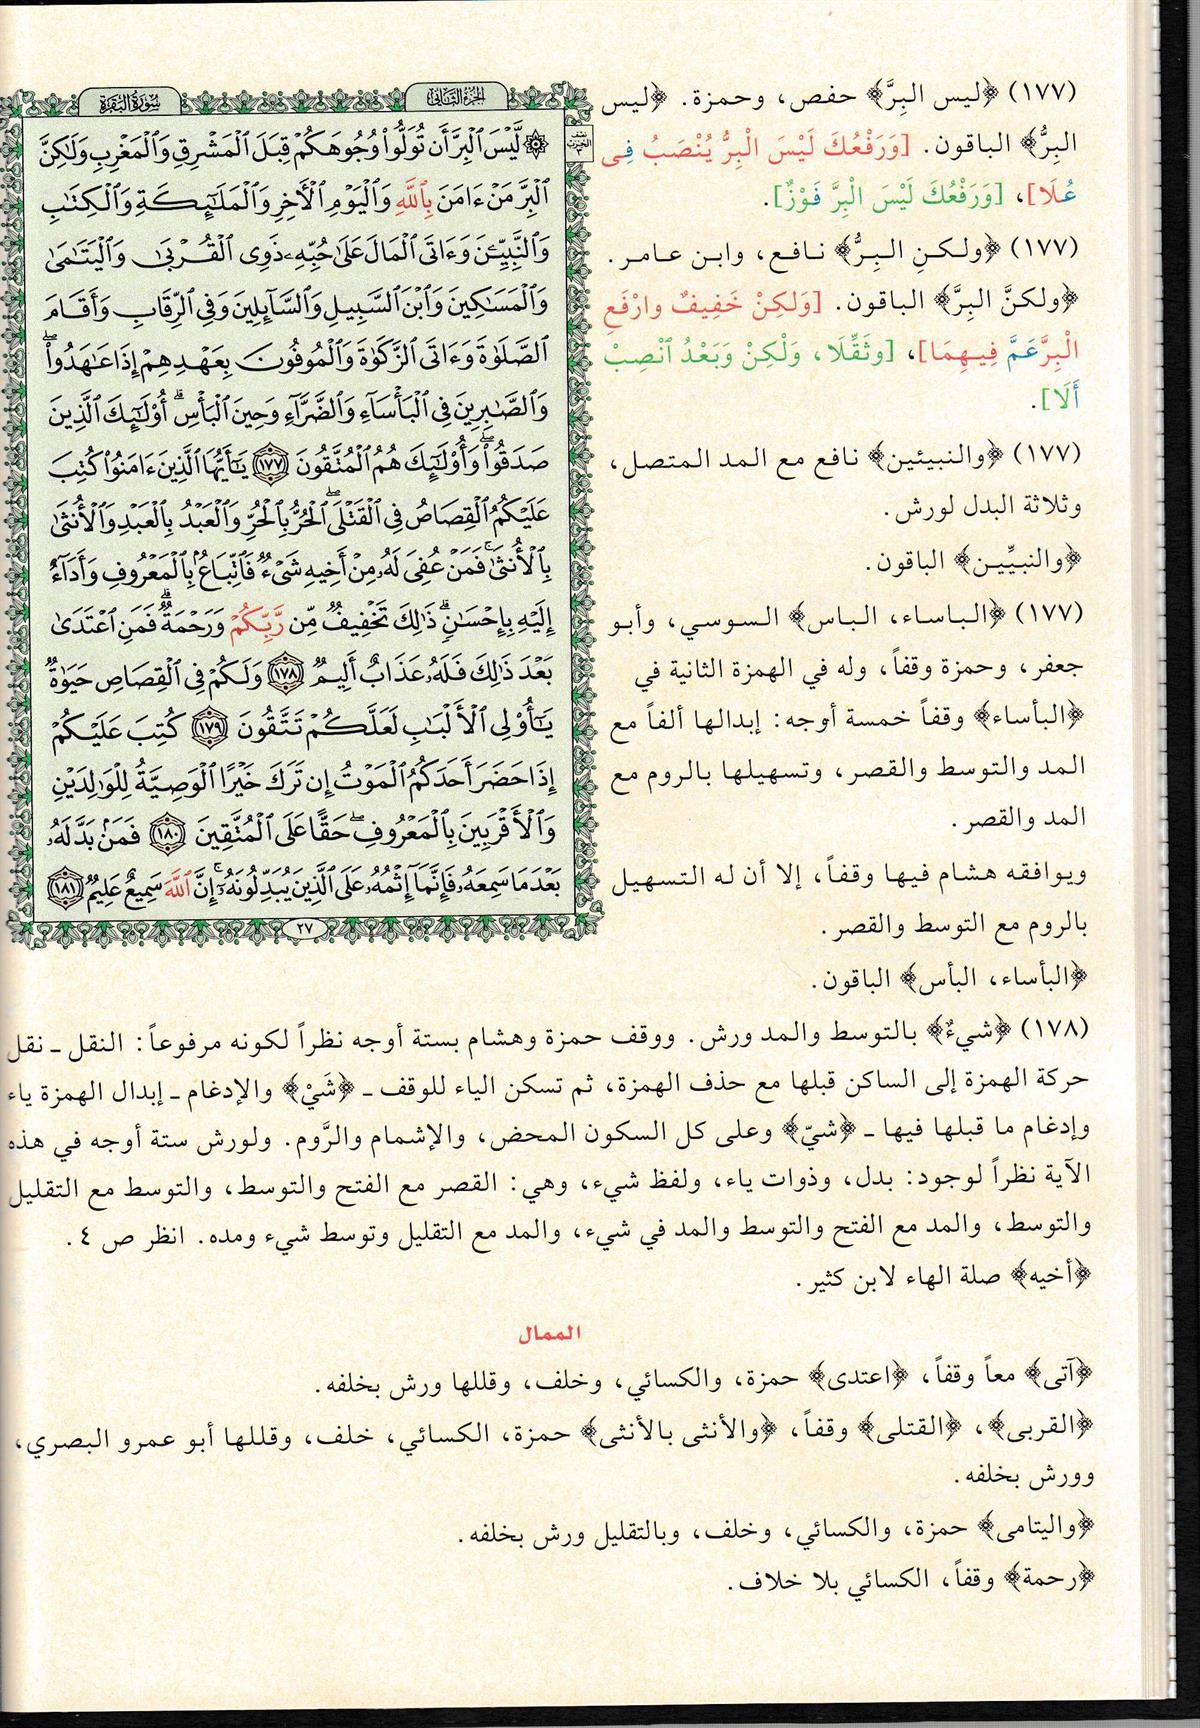 سورة البقرة
الجزء الثاني
لَّيْسَ الْبِرَّ أَن تُوَلُّوا وُجُوهَكُمْ قِبَلَ الْمَشْرِقِ وَالْمَغْرِبِ وَلَٰكِنَّ
الْبِرَّ مَنْ ءَامَنَ بِاللَّهِ وَالْيَوْمِ الْأَخِرِ وَالْمَلَٰٓئِكَةِ وَالْكِتَٰبِ
وَالنَّبِيِّۦنَ وَءَاتَى الْمَالَ عَلَىٰ حُبِّهِۦ ذَوِى الْقُرْبَىٰ وَالْيَتَٰمَىٰ
وَالْمَسَٰكِينَ وَابْنَ السَّبِيلِ وَالسَّآئِلِينَ وَفِى الرِّقَابِ وَأَقَامَ
الصَّلَوٰةَ وَءَاتَى الزَّكَوٰةَ وَالْمُوفُونَ بِعَهْدِهِمْ إِذَا عَٰهَدُوا ۖ
وَالصَّٰبِرِينَ فِى الْبَأْسَآءِ وَالضَّرَّآءِ وَحِينَ الْبَأْسِ ۗ أُولَٰٓئِكَ الَّذِينَ
صَدَقُوا ۖ وَأُولَٰٓئِكَ هُمُ الْمُتَّقُونَ ١٧٧ يَٰٓأَيُّهَا الَّذِينَ ءَامَنُوا كُتِبَ
عَلَيْكُمُ الْقِصَاصُ فِى الْقَتْلَى ۖ الْحُرُّ بِالْحُرِّ وَالْعَبْدُ بِالْعَبْدِ وَالْأُنثَىٰ
بِالْأُنثَىٰ ۚ فَمَنْ عُفِىَ لَهُۥ مِنْ أَخِيهِ شَىْءٌ فَاتِّبَاعٌۢ بِالْمَعْرُوفِ وَأَدَآءٌ
إِلَيْهِ بِإِحْسَٰنٍ ۗ ذَٰلِكَ تَخْفِيفٌ مِّن رَّبِّكُمْ وَرَحْمَةٌ ۗ فَمَنِ اعْتَدَىٰ
بَعْدَ ذَٰلِكَ فَلَهُۥ عَذَابٌ أَلِيمٌ ١٧٨ وَلَكُمْ فِى الْقِصَاصِ حَيَوٰةٌ
يَٰٓأُولِى الْأَلْبَٰبِ لَعَلَّكُمْ تَتَّقُونَ ١٧٩ كُتِبَ عَلَيْكُمْ
إِذَا حَضَرَ أَحَدَكُمُ الْمَوْتُ إِن تَرَكَ خَيْرًا الْوَصِيَّةُ لِلْوَٰلِدَيْنِ
وَالْأَقْرَبِينَ بِالْمَعْرُوفِ ۖ حَقًّا عَلَى الْمُتَّقِينَ ١٨٠ فَمَنۢ بَدَّلَهُۥ
بَعْدَ مَا سَمِعَهُۥ فَإِنَّمَآ إِثْمُهُۥ عَلَى الَّذِينَ يُبَدِّلُونَهُۥٓ ۚ إِنَّ اللَّهَ سَمِيعٌ عَلِيمٌ ١٨١
٢٧
(١٧٧) ﴿ليس البِرَّ﴾ حفص، وحمزة. ﴿ليس
البِرُّ﴾ الباقون. [وَرَفْعُكَ لَيْسَ الْبِرُّ يُنْصَبُ فِى
عُلَا]، [وَرَفْعُكَ لَيْسَ الْبِرَّ فَوْزٌ].
(١٧٧) ﴿ولكنِ البِرُّ﴾ نافع، وابن عامر.
﴿ولكنَّ البِرَّ﴾ الباقون. [وَلكِنْ خَفِيفٌ وارْفَعِ
الْبِرَّ عَمَّ فِيهِمَا]، [وثَقِّلَا، وَلْكِنْ وَبَعْدُ انْصِبْ
أَلَا].
(١٧٧) ﴿والنبيئين﴾ نافع مع المد المتصل،
وثلاثة البدل لورش.
﴿والنبيِّين﴾ الباقون.
(١٧٧) ﴿الباساء، الباس﴾ السوسي، وأبو
جعفر، وحمزة وقفاً، وله في الهمزة الثانية في
﴿البأساء﴾ وقفاً خمسة أوجه: إبدالها ألفاً مع
المد والتوسط والقصر، وتسهيلها بالروم مع
المد والقصر.
ويوافقه هشام فيها وقفاً، إلا أن له التسهيل
بالروم مع التوسط والقصر.
﴿البأساء، البأس﴾ الباقون.
(١٧٨) ﴿شيءٌ﴾ بالتوسط والمد ورش. ووقف حمزة وهشام بستة أوجه نظراً لكونه مرفوعاً: النقل ـ نقل
حركة الهمزة إلى الساكن قبلها مع حذف الهمزة، ثم تسكن الياء للوقف ـ ﴿شَيْ﴾ والإدغام ـ إبدال الهمزة ياء
وإدغام ما قبلها فيها ـ ﴿شيّ﴾ وعلى كل السكون المحض، والإشمام والرَّوم. ولورش ستة أوجه في هذه
الآية نظراً لوجود: بدل، وذوات ياء، ولفظ شيء، وهي: القصر مع الفتح والتوسط، والتوسط مع التقليل
والتوسط، والمد مع الفتح والتوسط والمد في شيء، والمد مع التقليل وتوسط شيء ومده. انظر ص ٤.
﴿أخيه﴾ صلة الهاء لابن كثير.
الممال
﴿آتى﴾ معاً وقفاً، ﴿اعتدى﴾ حمزة، والكسائي، وخلف، وقللها ورش بخلفه.
﴿القربى﴾، ﴿القتلى﴾ وقفاً، ﴿والأنثى بالأنثى﴾ حمزة، الكسائي، خلف، وقللها أبو عمرو البصري،
وورش بخلفه.
﴿واليتامى﴾ حمزة، والكسائي، وخلف، وبالتقليل ورش بخلفه.
﴿رحمة﴾ وقفاً، الكسائي بلا خلاف.